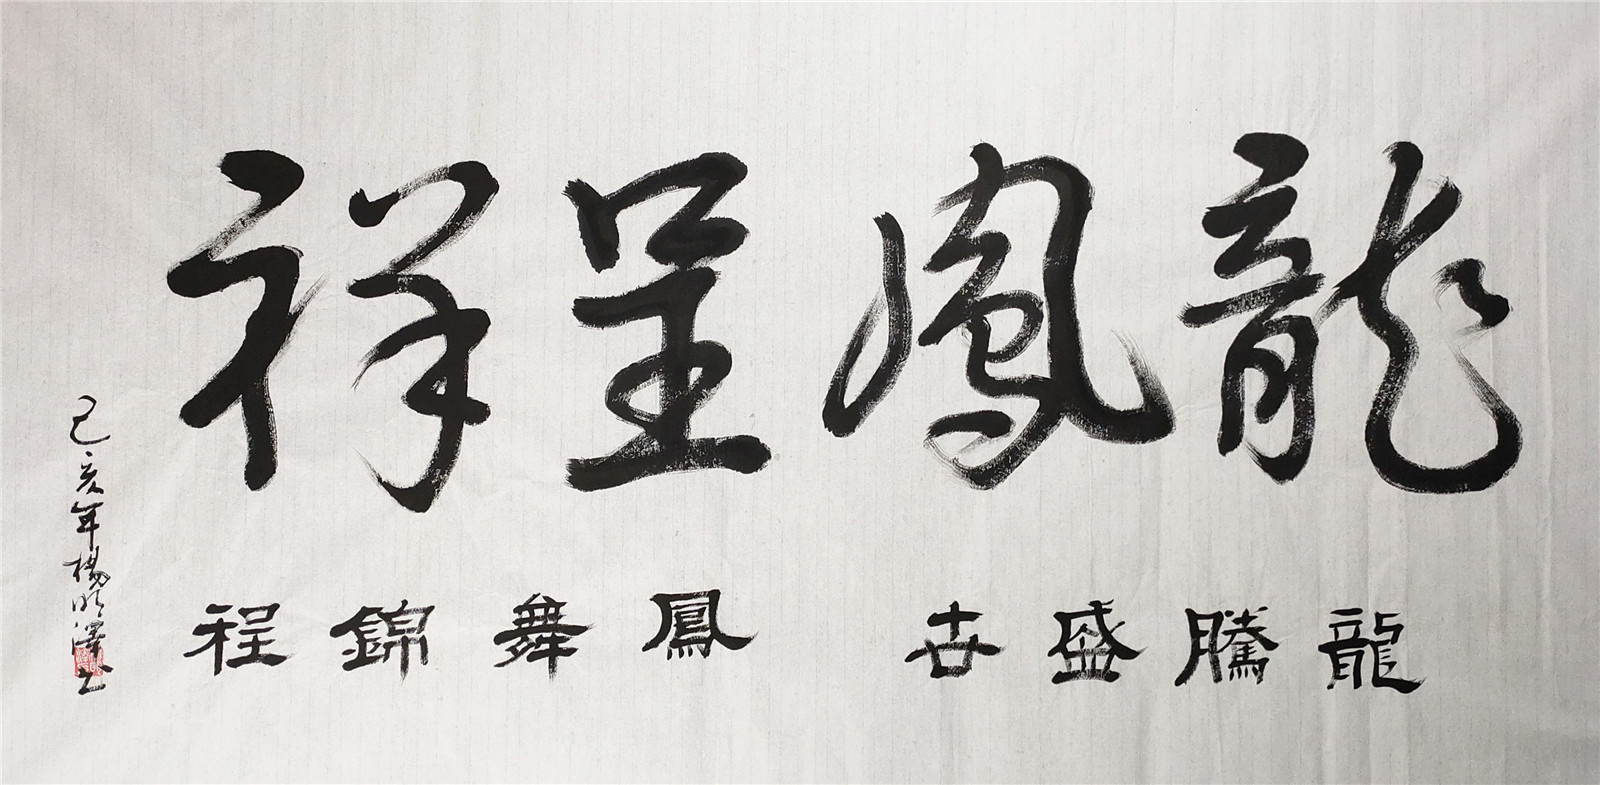 龍鳳呈祥
龍騰盛世 鳳舞錦程
己亥年楊明澤书